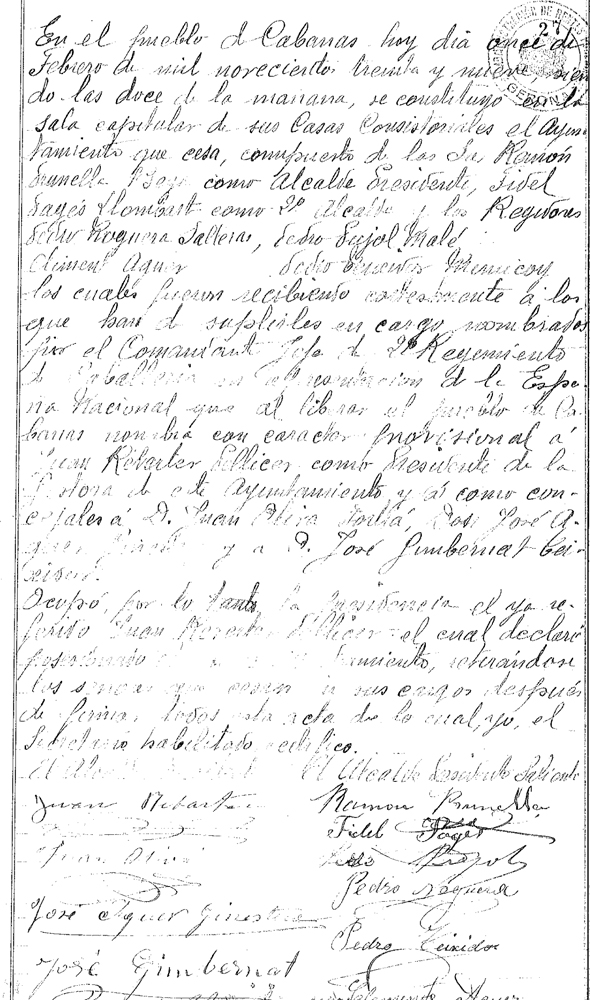 27
GERONA
En el pueblo de Cabanas hoy dia once de
Febrero de mil novecientos treinta y nueve, sien
do las doce de la mañana, se constituyó en la
sala capitular de sus Casas Consistoriales el Ayun
tamiento que cesa, compuesto de los Srs. Ramón
Brunella como Alcalde Presidente, Fidel
Pagés Llombart como 2º Alcalde y los Regidores
Pedro Noguera Falleras, Pedro Pujol Malé
Climent Aguer Pedro Teixidor
los cuales fueron recibiendo á los
que han de suplirles en cargo, nombrados
por el Comandante Jefe de 2º Regimiento
de Caballeria en representacion de la Espa
ña Nacional que al liberar el pueblo de Ca
banas nombra con caracter provisional á
Juan Rebarter Pellicer como Presidente de la
Gestora de este Ayuntamiento y asi como con-
cejales á D. Juan Oliva, Don José A-
guer Ginestra y a D. José Gimbernat Tei-
xidor.
Ocupó, por lo tanto, la presidencia el ya re-
ferido Juan Rebarter Pellicer el cual declaró
posesionado tamiento, retirándose
los señores que cesan en sus cargos después
de firmar todos esta acta de lo cual, yo, el
Secretario habilitado certifico.
El Alcalde El Alcalde Presidente Saliente
Juan Rebarter Ramon Brunella
Fidel Pagés
Juan Oliva Pedro Pujol
Pedro Noguera
José Aguer Ginestra
Pedro Teixidor
José Gimbernat
Aguer